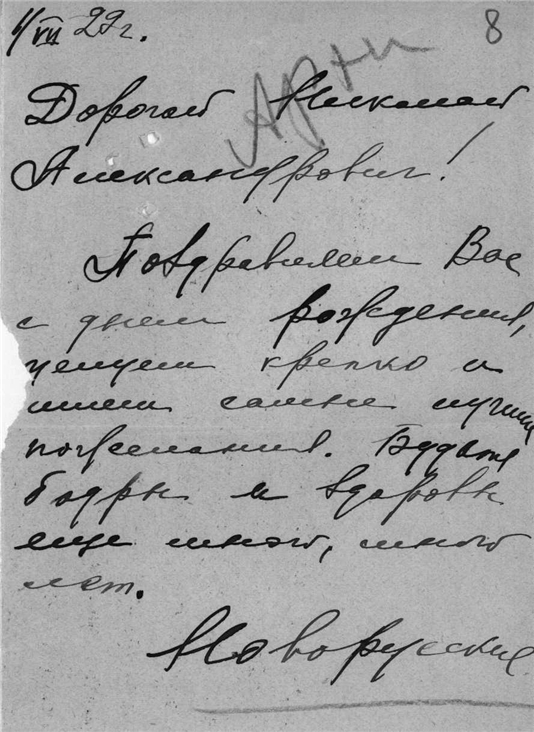 4/VII 29 г.
8
Архив
Дорогой Николай
Александрович!
Поздравляем Вас
с днем рождения,
целуем крепко и
шлем самые лучшие
пожелания. Будьте
бодры и здоровы
еще много, много
лет.
Новорусские